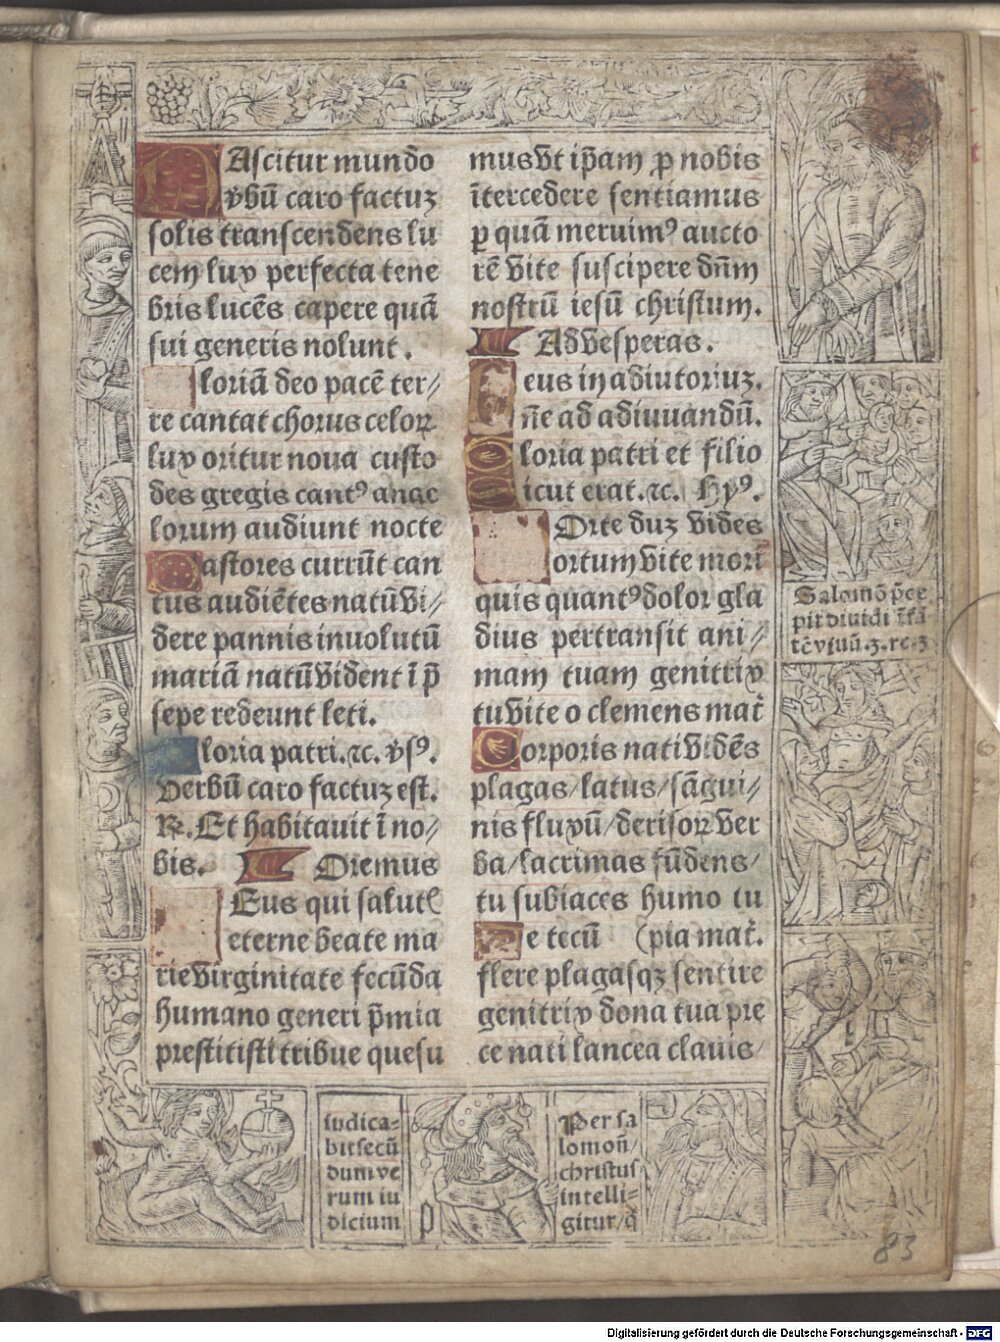 Ascitur mundo
v̄bū caro factuꝫ
solis transcendens lu
cem lux perfecta tene
bris lucēs capere quā
sui generis nolunt.
loriā deo pacē ter⸗
re cantat chorus celoꝝ
lux oritur noua custo
des gregis cantꝰ ange
lorum audiunt nocte
Pastores currūt can
tus audiētes natū vi⸗
dere pannis inuolutū
mariā natū vident ī p̄
sepe redeunt leti.
loria patri.ꝛc. v̄sꝰ.
Verbū caro factuꝫ est.
℞. Et habitauit ī no⸗
bis. Oremus
Eus qui salutꝭ
eterne beate ma
rie virginitate fecūda
humano generi p̄mia
prestitisti tribue quesu
mus vt ip̄am ꝓ nobis
ītercedere sentiamus
ꝑ quā meruimꝰ aucto
rē vite suscipere dn̄m
nostrū iesū christum.
Ad vesperas.
eus in adiutoriuꝫ.
n̄e ad adiuuandū.
loria patri et filio
icut erat.ꝛc. Hyꝰ.
Orte duꝫ vides
ortum vite mori
quis quantꝰ dolor gla
dius pertransit ani⸗
mam tuam genitrix
tu vite o clemens mat̄
Corporis nati vidēs
plagas/latus/sāgui⸗
nis fluxū/derisoꝝ ver
ba/lacrimas fūdens/
tu subiaces humo tu
e tecū (pia mat̄.
flere plagasqꝫ sentire
genitrix dona tua pre
ce nati lancea clauis/
Salomō p̄ce
pit diuidi īfā
tē viuū.3.re.3
iudica⸗
bit secū
dum ve
rum iu
dicium
Per sa
lomon̄/
christus
intelli⸗
gitur/q̄
83
Digitalisierung gefördert durch die Deutsche Forschungsgemeinschaft - DFG